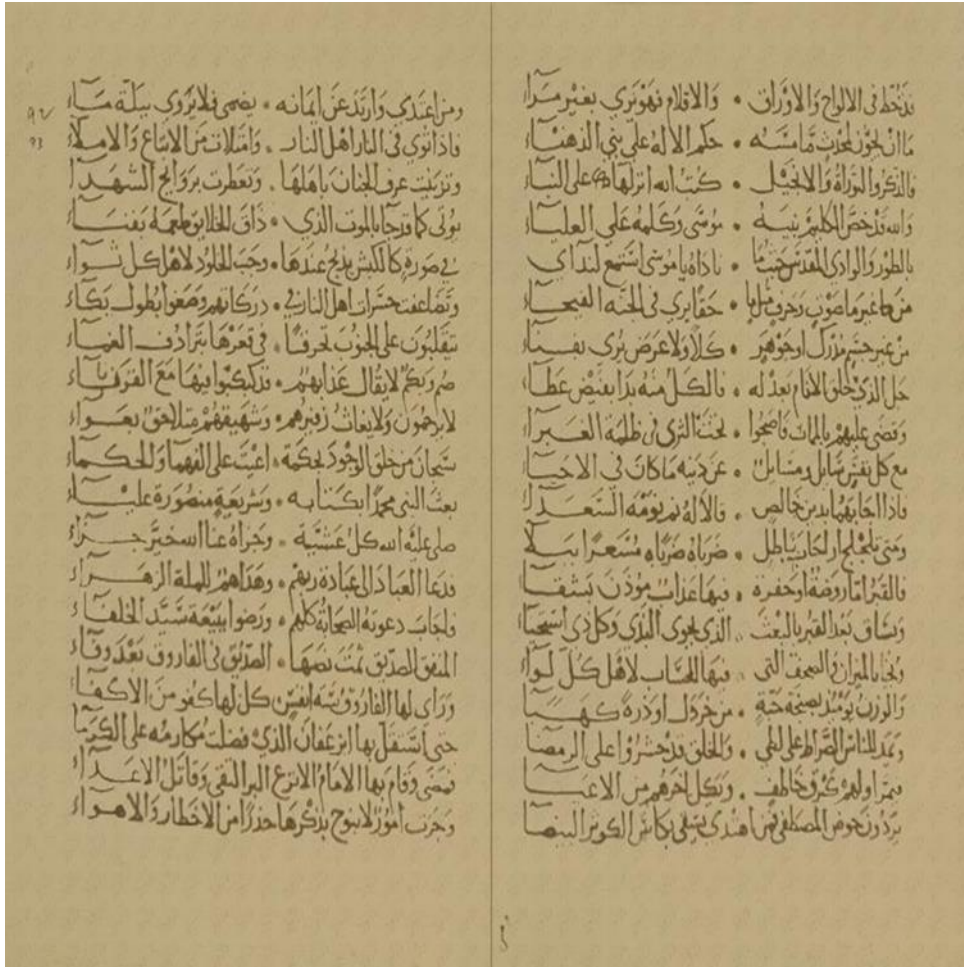 قد خط في الالواح والاوراق • والاقلام فهو يرى بغير مراء
ما ان لحون لمحدث مامسه • حكم الاله على بني الدهناء
فالذكر والتوراة والانجيل • كتب الله انزلها على
والله قد خص الكليم نبيه • موسى وكلمه على العلياء
بالطور والوادي المقدس • ناداه يا موسى استمع لنداي
من غير ما صوت وحرف • حقا يرى في الجنة الفيحاء
من غير جسم او جوهر • كلا ولا عرض يرى بفناء
جل الذي خلق الانام بعدله • فالكل منه بدا بفيض عطاء
وقضى عليهم بالممات فاصبحوا • تحت الثرى في ظلمة الغبراء
مع كل نفس سايل ومسايل • عن دينه ما كان في الاحياء
فاذا اجابهما بدين خالص • قالا له نم نومة السعداء
ومتى تلجلج او اجاب بباطل • ضرباه ضرباه مسعرا ببلاء
فالقبر اما روضة او حفرة • فيها عذاب مؤذن بشقاء
ويساق بعد القبر بالبعث • الذي يحوي الهدى وكل ذي استحياء
ويجاء بالميزان والصحف التي • فيها الحساب لاهل كل لواء
والوزن يومئذ بصنجة حبة • من خردل او ذرة كهباء
ويمد للناس الصراط على لظى • والخلق قد حشروا على الرمضاء
فيمر اولهم كبرق خاطف • ويكل اخرهم من الاعياء
يردون حوض المصطفى فمن اهتدى يسقى بكأس الكوثر البيضاء
ومن اعتدى وارتد عن ايمانه • يضمى فلا يروى ببلة ماء
فاذا ثوى في النار اهل النار • وامتلات من الاتباع والاملاء
وتزينت غرف الجنان باهلها • وتعطرت بروايح الشهداء
يؤتى كما قد جاء بالموت الذي • ذاق الخلايق طعمه بفناء
في صورة كالكبش يذبح عندها • وجب الخلود لاهل كل ثواء
وتضاعفت حسرات اهل النار في • دركاتهم وضعوا بطول بكاء
يتقلبون على الجنوب تحرفا • في قعرها بترادف الغماء
صم وبكم لا يقال عذابهم • قد كبكبوا فيها مع القرناء
لا يرحمون ولا يغاث زفيرهم • وشهيقهم متلاحق بعواء
سبحان من خلق الوجود لحكمة • اعيت على الفهماء والحكماء
بعث النبي محمدا بكتابه • وشريعة منصورة علياء
صلى عليه الله كل عشية • وجزاه عنا الله خير جزاء
فدعا العباد الى عبادة ربهم • وهداهم للملة الزهراء
واجاب دعوته الصحابة كلهم • ورضوا ببيعة سيد الخلفاء
المنفق الصديق ثمت نصها • الصديق في الفاروق بعد وفاء
وراى لها الفاروق ستة انفس كل لها كفو من الاكفاء
حتى استقل بها ابن عفان الذي فضلت مكارمه على الكرماء
فمضى وقام بها الامام الانزع البر التقي وقاتل الاعداء
وجرت امور لا نبوح بذكرها حذرا من الاخطار والاهواء
٩٢
٩٣